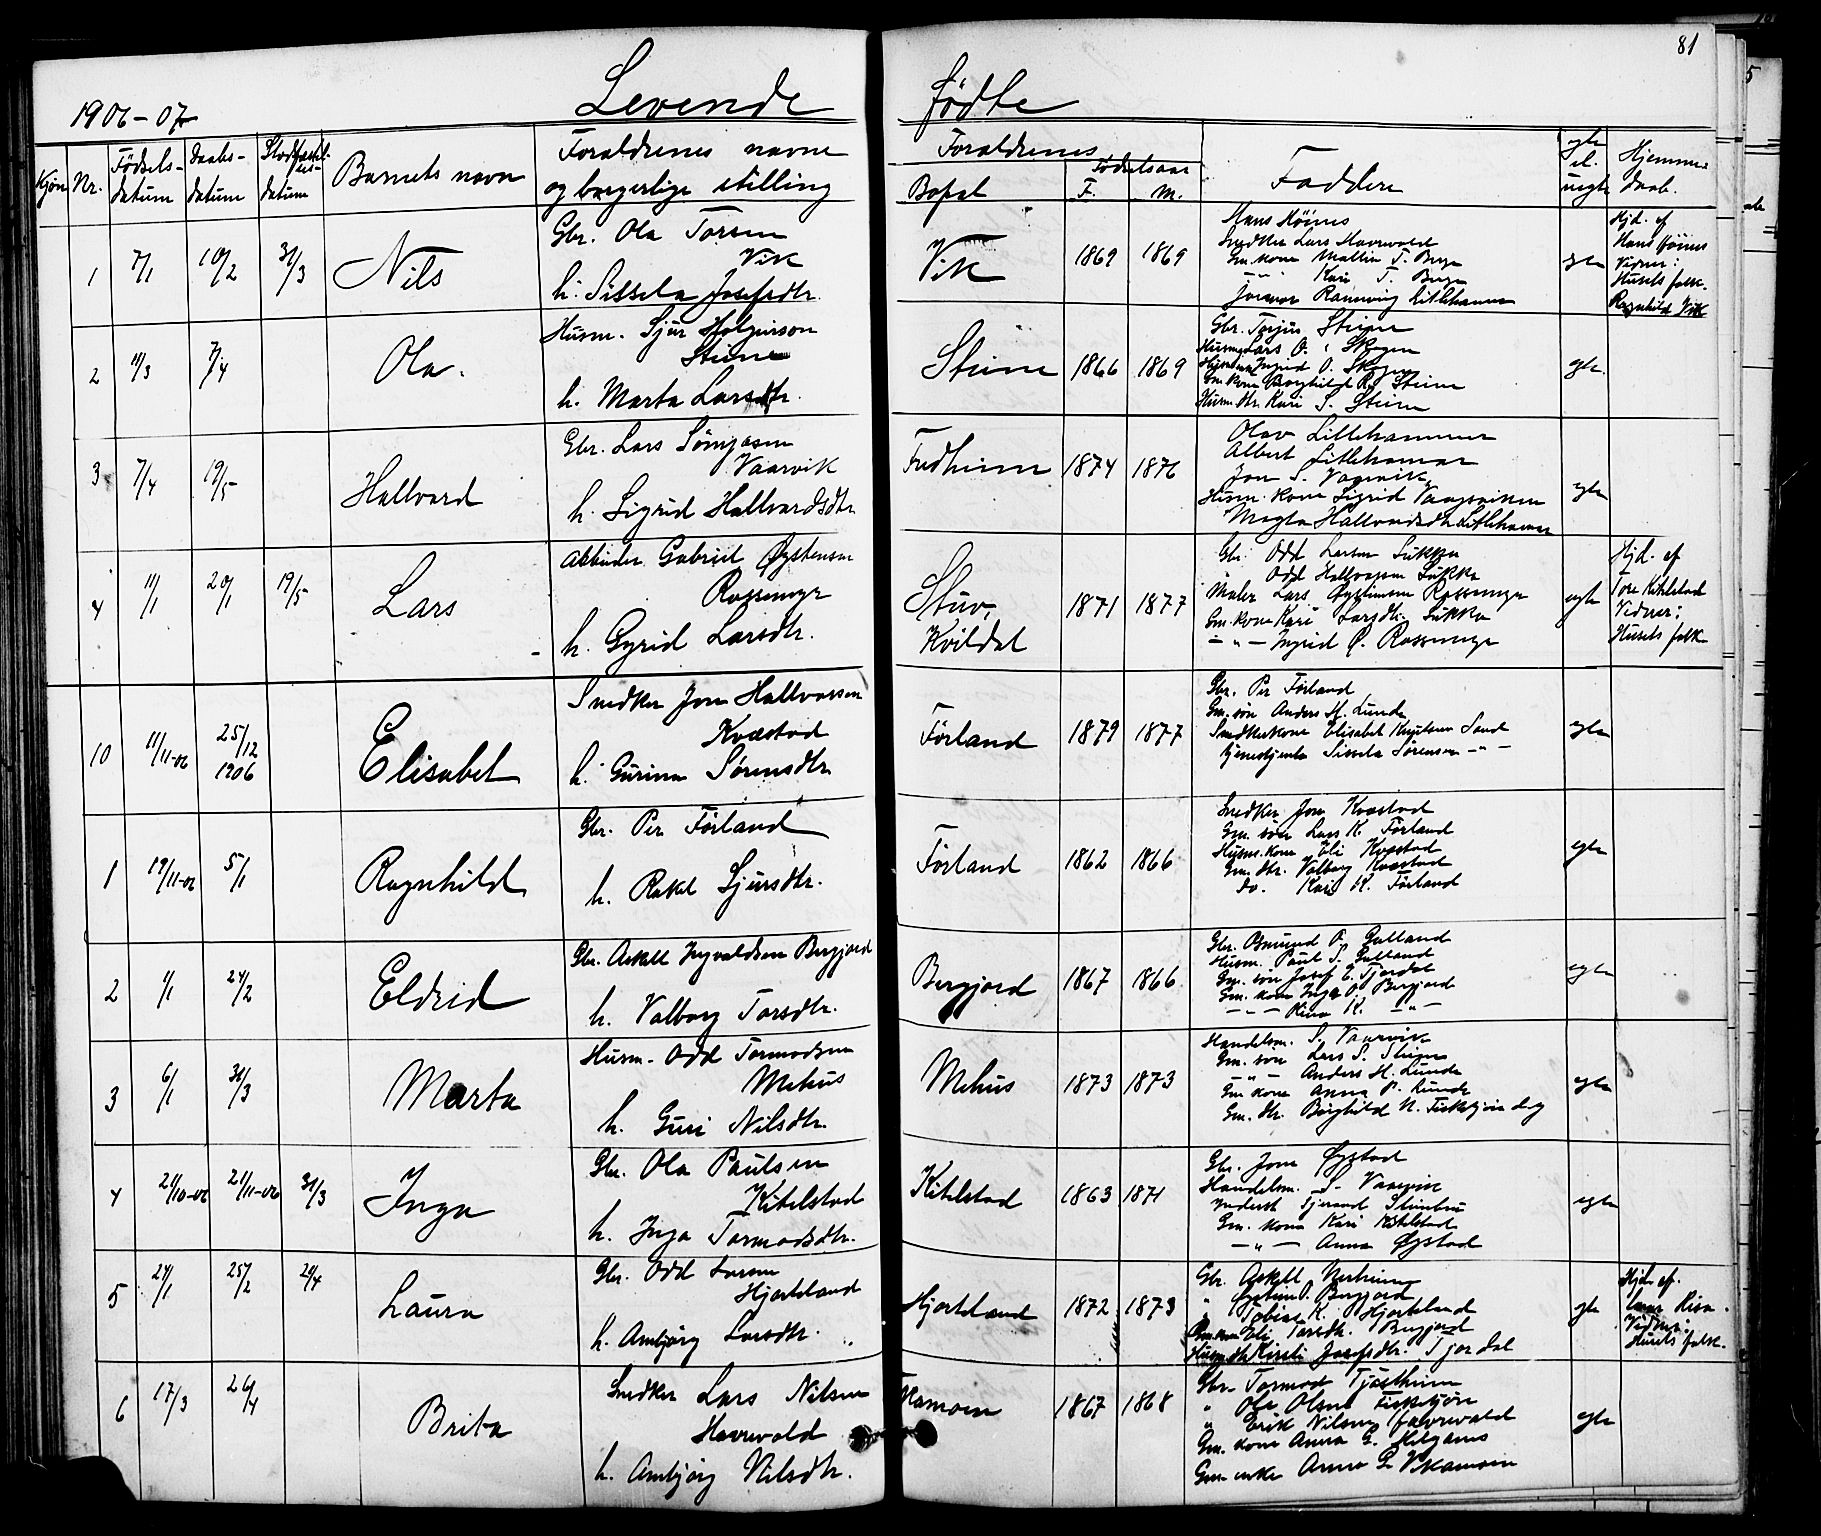 81
1906-07
Levende fødte
Kjøn
Nr.
Fødsels-
datum
Daabs-
datum
datum
Barnets navn
Forældrenes navne
og borgerlige stilling
Forældrenes
Bopæl
Fødselsaar
F.
M.
Faddere
egte
el.
uegte
Hjemme-
daab.
1
7/1
10/2
31/3
Nils
Gbr. Ola Torsen
Vik
h. Sissela Josefsdtr.
Vik
1869
1869
Hans Høines
Snedker Lars Havrevold
Gm. kone Mallin T. Berge
— " — Kari T. Berge
Rannveig Litlehamar
egte
Hjd. af
Hans Høines
Vidner:
Husets folk.
Ragnhild Vik
2
11/3
7/4
Ola.
Husm. Sjur Holgerson
Steine
h. Marta Larsdtr.
Steine
1866
1869
Gbr. Torjus Steine
Husm. Lars O. Skogen
Ingrid O. Skogen
Gm. kone Borghild R. Steine
Husm. dtr. Kari S. Steine
egte.
3
7/4
19/5
Hallvard
Gbr. Lars
Vaarvik
h. Sigrid Hallvardsdtr.
1874
1876
Olav Litlehammer
Albert Litlehamar
Jon S. Vaarvik
Husm. kone Sigrid
Magla Hallvardsdtr. Litlehamar
egte
4
11/1
20/1
19/5
Lars
Gabriel Øystensen
Rossemyr
h. Gyrid Larsdtr.
Stuv,
Kvildal
1871
1877
Gbr. Odd Larsen Sukka
Odd Hallvarsen Sukka
Maler Lars Øysteinsen Rossemyr
Gm. kone Kari Larsdtr. Sukka
— " — Ingrid Ø. Rossemyr
egte
Hjd. af
Tore Kitelstad
Vidner:
Husets folk
10
11/11-06
25/12
1906
Elisabet
Snedker Jon Hallvorsen
Kvæstad
h. Gurina Sørensdtr.
Førland
1879
1877
Gbr. Per Førland
Gm. søn Anders H. Lunde
Snedkerkone Elisabet Knutsen Sand
tjenestjente Sissela Sørensen — " —
egte
1
19/11-06
5/1
Ragnhild
Gbr. Per Førland
h. Rakel Sjursdtr.
Førland
1862
1866
Snedker Jon Kvæstad
Gm. søn Lars K. Førland
Husm. kone Eli Kvæstad
Gm. dtr. Valborg Kvæstad
do. Kari K. Førland
egte
2
1/1
24/2
Eldrid
Gbr. Askell Ingvaldsen Bergjord
h. Valborg Torsdtr.
Bergjord
1867
1866
Gbr. Osmund O. Gulland
Husm. Paul S. Gulland
Gm. søn Josef E. Tjordal
Gm. kone Inga O. Bergjord
— " — Rina K. — " —
egte
3
6/1
31/3
Marta
Husm. Odd Tormodsen
Mehus
h. Guri Nilsdtr.
Mehus
1873
1873
Handelsm. S. Vaarvik
Gm. søn Lars S. Steine
— " — Anders H. Lunde
Gm kone Anna P. Lunde
Gm. dtr. Borghild N.
egte
4
21/10-06
21/11-06
31/3
Inga
Gbr. Ola Paulsen
Kitelstad
h. Inga Tormodsdtr.
Kitelstad
1863
1871
Gbr. Jon Øystad
Handelsm. S. Vaarvik
Inderst Tjerand
Gm. kone Kari Kitelstad
— " — Anna Øystad
egte
5
24/1
25/2
20/4
Laura
Gbr. Odd Larsen
Hjorteland
h. Ambjørg Larsdtr.
Hjorteland
1872
1873
Gbr. Askell
" Øystein O. Bergjord
" Tobias K. Hjorteland
Gm. kone Eli Torsdtr. Bergjord
Husm. dtr. Kirsti Josefsdtr. Tjordal
egte
Hjd. af.
Risa.
Vidner:
Husets folk.
6
17/3
26/4
Brita
Snedker Lars Nilsen
Havrevold
h. Ambjørg Nilsdtr.
1867
1868
Gbr. Tormod Tjostheim
" Ole Olsen
" Erik Nilsen Havrevold
Gm. kone Anna G.
Gm. enke Anna G. Vikamoen
egte